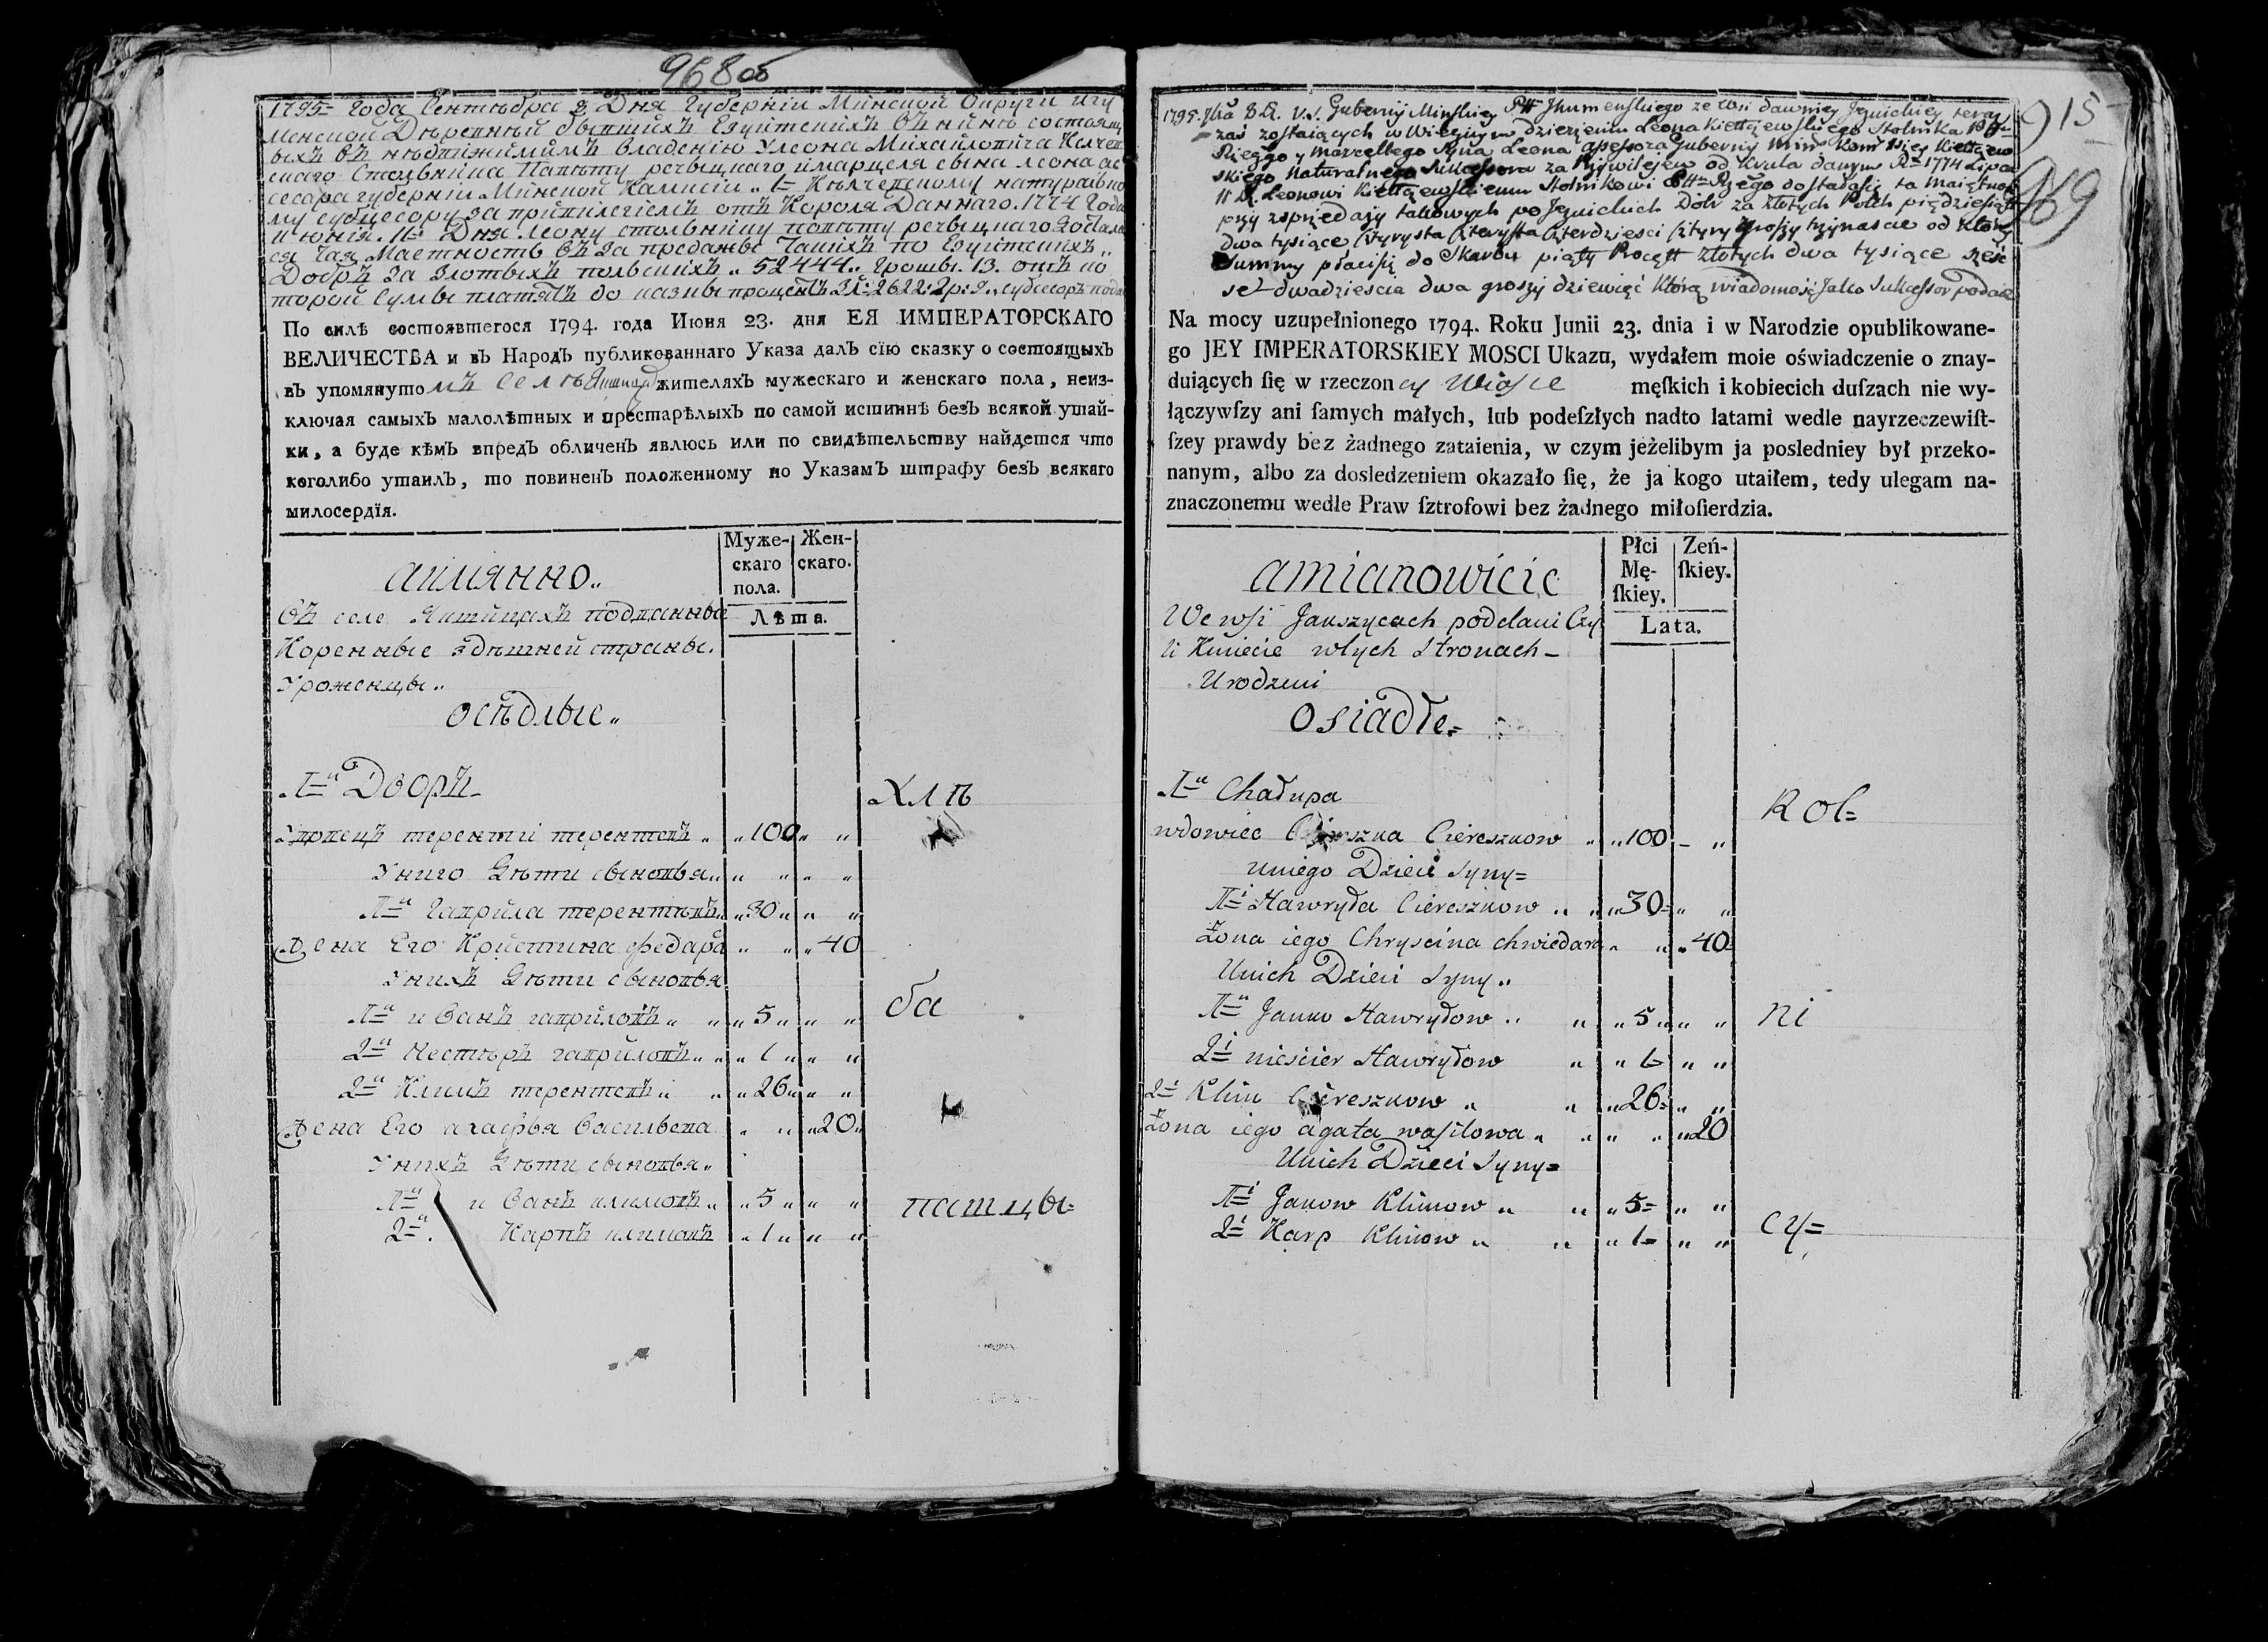 968об
1795= Года Сентебра 8 Дня Губернiи Минской Округи Игу
менской Деревнъй бывшихъ Езуитскихъ въ нынъ состоящ
выхъ въ владенiю Улеона Михайловича
скаго Стольника Повъту речыцкаго имарцеля сына леона ас
сесара губернiи Минской натурально
му сукцесору за привилегiемъ отъ Короля Даннаго 1774 Года
июнiя 11= Дня леону стольнику повъту речыцкаго
ся Маетность въ за продажъ Такихъ по Езуитскихъ
Добръ за Злотыхъ польскихъ 52444 Грошы 13. отъ ко
торой Сумы платятъ до казны процентъ Зл: 2622: гр: 9
По силѣ состоявшегося 1794. года Июня 23. дня ЕЯ ИМПЕРАТОРСКАГО
ВЕЛИЧЕСТВА и въ Народъ публикованнаго Указа далъ сїю сказку о состоящыхъ
въ упомянуто мъ Селъ жителяхъ мужескаго и женскаго пола, неиз-
ключая самыхъ малолѣтных и престарѣлыхъ по самой истиннѣ безъ всякой утай-
ки, а буде кѣмъ впредъ обличенъ явлюсь или по свидѣтельству найдется что
коголибо утаилъ, то повиненъ положенному по Указамъ штрафу безъ всякаго
милосердїя.
Муже- Жен-
скаго скаго.
пола.
Лѣта.
въ селе подданные
Коренные здъшней страны
Уроженцы
осѣдлые
1й Дворъ
Хлъ
Удовецъ терентiй терентевъ 100
Униго Дъти сыновья
1й Гаврила терентевъ 30
Жена Его Кристина федара 40
Унихъ Дъти сыновья
1й иванъ гавриловъ 5
ба
2й нестеръ гавриловъ 1
2й Климъ терентевъ 26
Жена Его агафья васильева 20
Унихъ Дъти сыновья
1й иванъ климовъ 5
2й Карпъ климовъ 1
пашцы=
915
969
1795. 8 D. V.S. Gubernij Minskiey Ptt Jhumenskiego ze Wsi dawniey Jezuickiey teraz
zas zostaiących w Wiecznym dzierzeniu Leona Kiełczewskiego Stolnika Ptt
Rzeggo y Marcellego Syna Leona assessora Guberny Min
skiego Naturalnego Sukcessora za Przywilejem od Krula danym R= 1774 Lipca
11 D. Leonowi Kiełczewskiemu Stolnikowi Ptt Rzego dostałasię ta Maiętność
przy zsprzedaży takowych po Jezuickich Dobr za złotych Polch piędziesiąt
dwa tysiące cztyrysta czterdziesci cztyry groszy trzynascie od ktorey
Summy płacisię do Skarbu piąty Procętt złotych dwa tysiące sześć
set dwadziescia dwa groszy dziewięć którą wiadomość Jako Sukcessor podaię
Na mocy uzupełnionego 1794. Roku Junii 23. dnia i w Narodzie opublikowane-
go JEY IMPERATORSKIEY MOSCI Ukazu, wydałem moie oświadczenie o znay-
duiących ſię w rzeczon ey Wiosce męſkich i kobiecich duſzach nie wy-
łączywſzy ani ſamych małych, lub podeſzłych nadto latami wedle nayrzeczewiſt-
ſzey prawdy bez żadnego zataienia, w czym jeżelibym ja posledniey był przeko-
nanym, albo za dosledzeniem okazało ſię, że ja kogo utaiłem, tedy ulegam na-
znaczonemu wedle Praw ſztrofowi bez żadnego miłoſierdzia.
Płci Zeń-
Mę- ſkiey.
ſkiey.
Lata.
amianowicie
We wsi Januszycach poddani Czy
li Kmiecie wtych Stronach
Urodzeni
Osiadłe
1a Chałupa
Rol=
wdowiec Ciereszka Ciereszkow 100
uniego Dzieci Syny=
1i Hawryła Ciereszkow 30
Żona iego Chryscina chwiedara 40
Unich Dzieci Syny
1i Janko Hawryłow 5
ni
2i niescier Hawryłow 1
2i Klim Ciereszkow 26
Żona iego agata wasilowa 20
Unich Dzieci Syny=
1i Janow Klimow 5
2i Karp Klimow 1
cy=